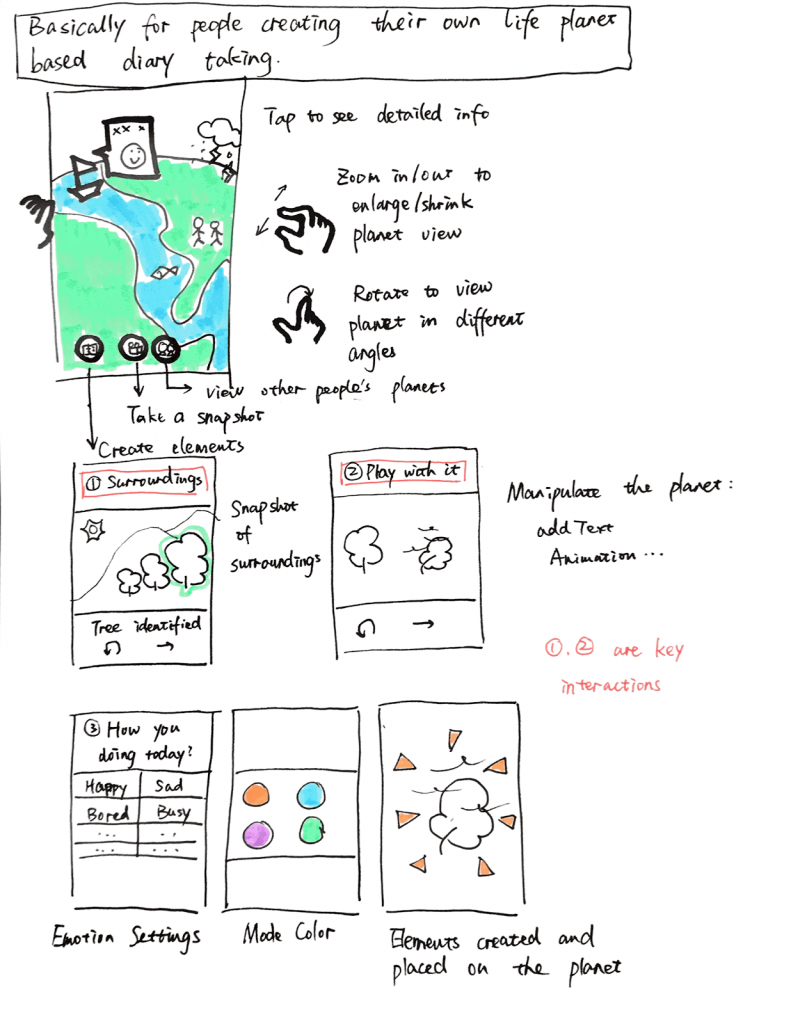 Basically for people creating their own life planet
based diary taking.
xx x
Tap to see detailed info
Zoom in/out to
enlarge/shrink
planet view
Rotate to view
planet in different
angles
view other people's planets
Take a snapshot
Create elements
① Surroundings
Snapshot
of
surroundings
Tree identified
② Play with it
Manipulate the planet:
add Text
Animation ...
①.② are key
interactions
③ How you
doing today?
Happy Sad
Bored Busy
... ..
... ...
Emotion Settings
Mode Color
Elements created and
placed on the planet